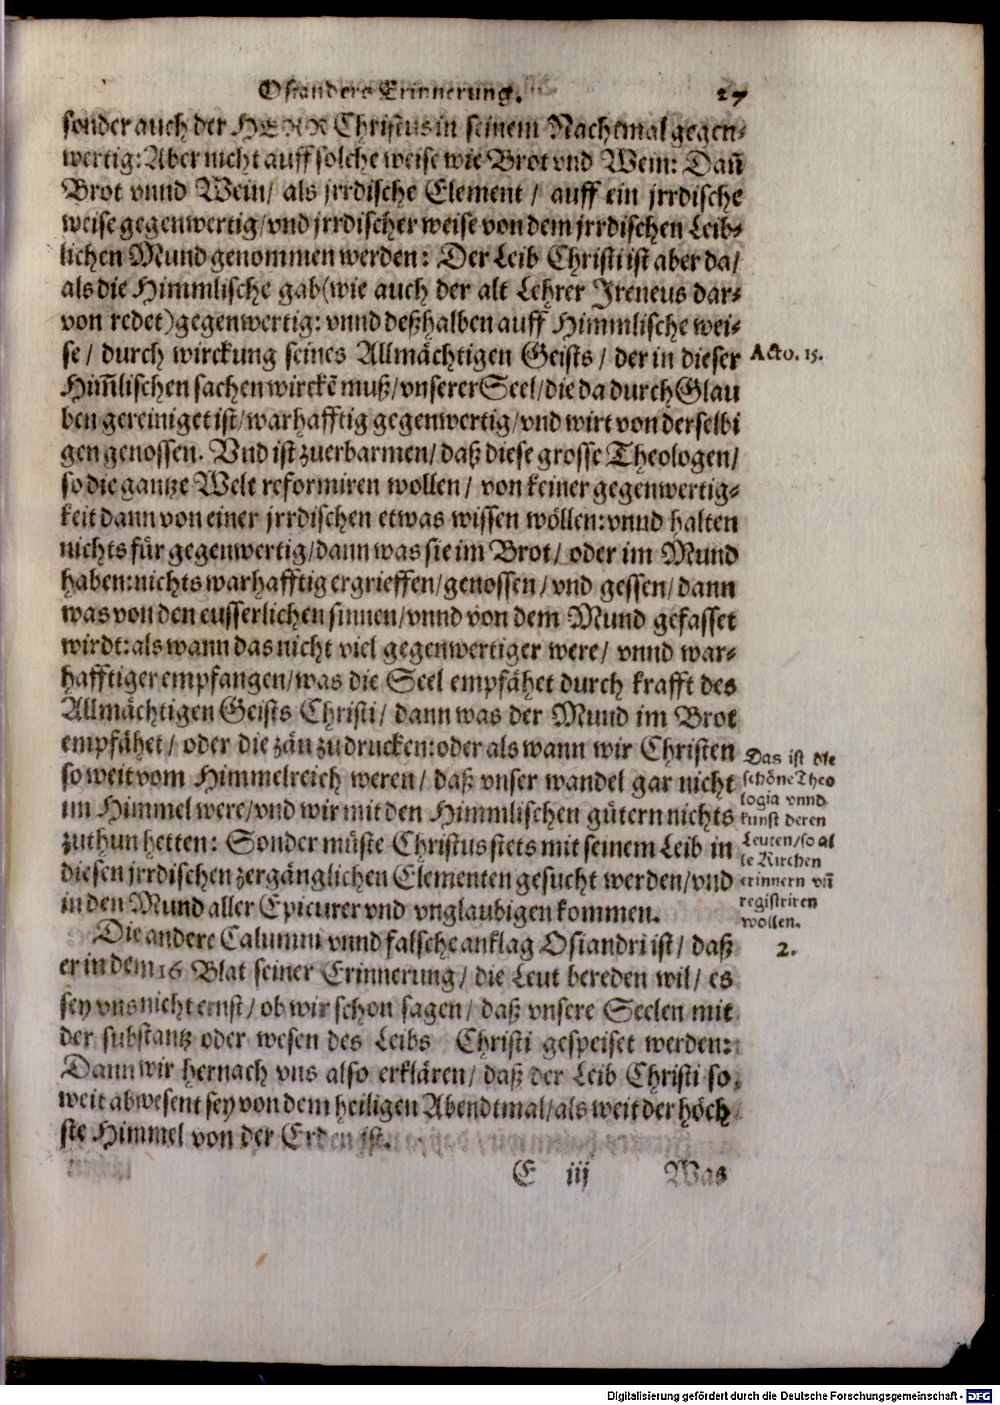 Osianders Erinnerung. 27
sonder auch der HERR Christus in seinem Nachtmal gegen-
wertig: Aber nicht auff solche weise wie Brot vnd Wein: Dañ
Brot vnnd Wein/ als jrrdische Element / auff ein jrrdische
weise gegenwertig/vnd jrrdischer weise von dem jrrdischen Leib-
lichen Mund genommen werden: Der Leib Christi ist aber da/
als die Himmlische gab(wie auch der alt Lehrer Jreneus dar-
von redet)gegenwertig: vnnd deßhalben auff Himmlische wei-
se / durch wirckung seines Allmächtigen Geists / der in dieser
Him̃lischen sachen wirckẽ muß/vnserer Seel/die da durch Glau
ben gereiniget ist/warhafftig gegenwertig/vnd wirt von derselbi
gen genossen. Vnd ist zuerbarmen/ daß diese grosse Theologen/
so die gantze Welt reformiren wollen / von keiner gegenwertig-
keit dann von einer jrrdischen etwas wissen wöllen: vnnd halten
nichts für gegenwertig/dann was sie im Brot/ oder im Mund
haben: nichts warhafftig ergrieffen/genossen/ vnd gessen/ dann
was von den eusserlichen sinnen/vnnd von dem Mund gefasset
wirdt: als wann das nicht viel gegenwertiger were/ vnnd war-
hafftiger empfangen/was die Seel empfähet durch krafft des
Allmächtigen Geists Christi/ dann was der Mund im Brot
empfähet/ oder die zän zudrucken: oder als wann wir Christen
so weit vom Himmelreich weren/ daß vnser wandel gar nicht
im Himmel were/vnd wir mit den Himmlischen gütern nichts
zuthun hetten: Sonder müste Christus stets mit seinem Leib in
diesen jrrdischen zergänglichen Elementen gesucht werden/vnd
in den Mund aller Epicurer vnd vnglaubigen kommen.
Die andere Calumni vnnd falsche anklag Osiandri ist/ daß
er in dem 16 Blat seiner Erinnerung/ die Leut bereden wil/ es
sey vns nicht ernst/ ob wir schon sagen/ daß vnsere Seelen mit
der substantz oder wesen des Leibs Christi gespeiset werden:
Dann wir hernach vns also erklären/ daß der Leib Christi so
weit abwesent sey von dem heiligen Abendtmal/als weit der höch
ste Himmel von der Erden ist.
E iij Was
Acto. 15.
Das ist die
schöne Theo
logia vnnd
kunst deren
Leuten/so al
le Kirchen
erinnern vñ
registriren
wollen.
2.
Digitalisierung gefördert durch die Deutsche Forschungsgemeinschaft - DFG